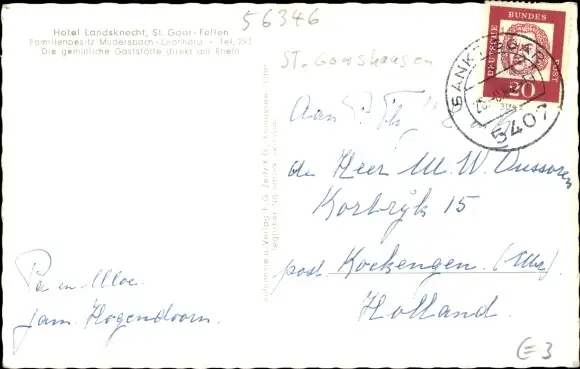 56346
Hotel Landsknecht, St. Goar-Fellen
Familienbesitz Mudersbach-Leonhard - Tel. 293
Die gemütliche Gaststätte direkt am Rhein
St. Goarshausen
DEUTSCHE BUNDES POST
20
SANKT GOAR
5407
Aan
de Heer M. W. Dussoren
Kortrijk 15
post Kockengen. (Utr.)
Holland.
Pa en Moe.
fam. Hogendoorn.
E3